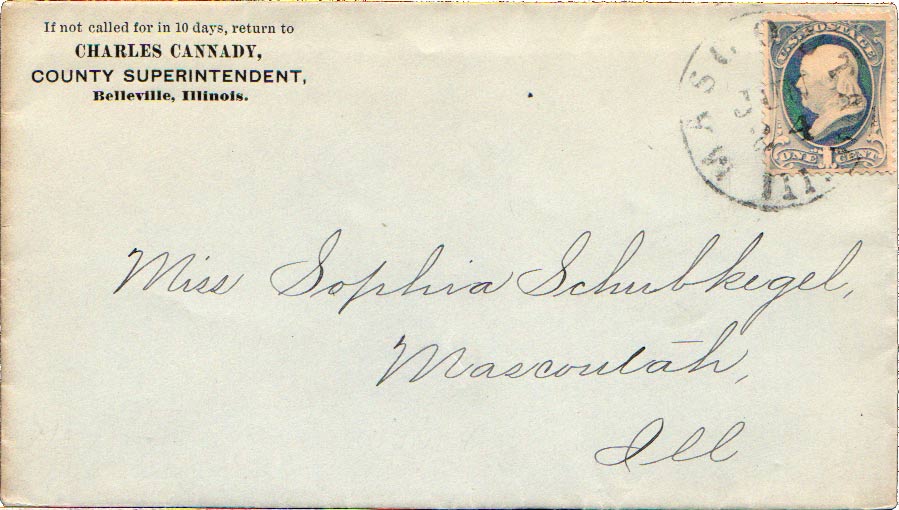 If not called for in 10 days, return to
CHARLES CANNADY,
COUNTY SUPERINTENDENT,
Belleville, Illinois.
U.S. POSTAGE
ONE 1 CENT
MASCOUTAH
4
ILL
Miss Sophia Schubkegel,
Mascoutah,
Ill